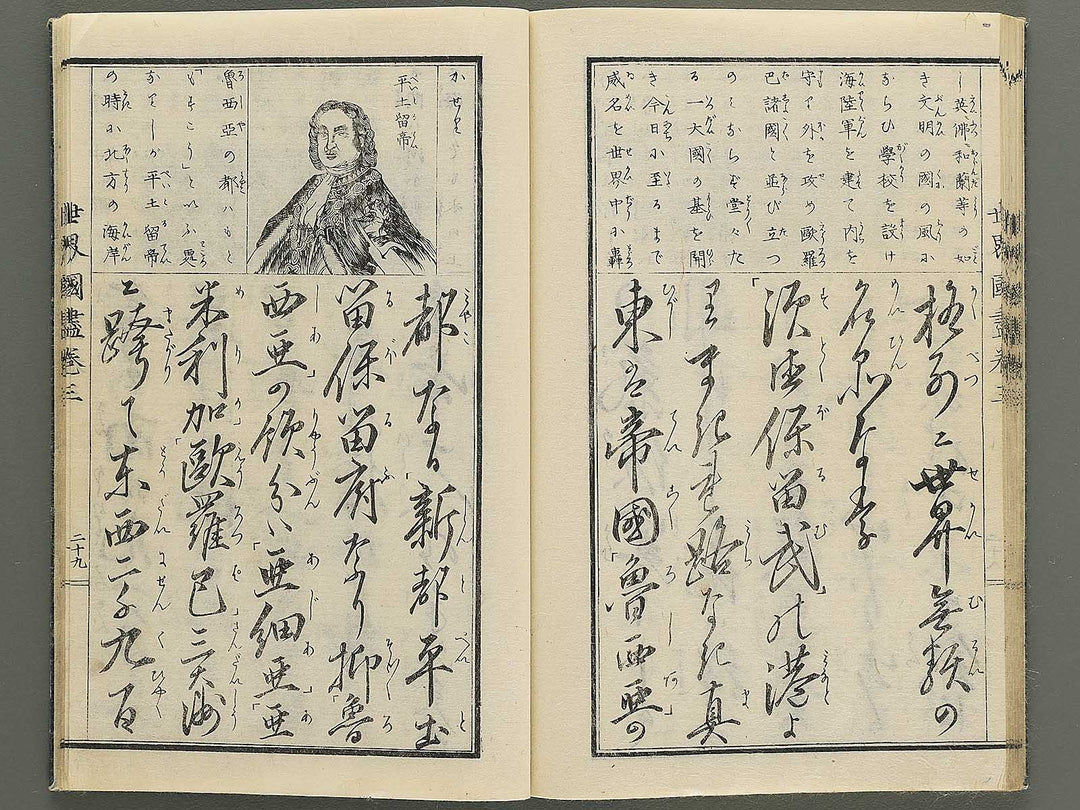 し英佛和蘭等の如
き文明の國の風か
ならひ學校を設け
海陸軍を建て内を
守り外を攻め歐羅
巴諸國と並び立つ
のミならず堂々た
る一大國の基を開
き今日に至るまで
威名を世界中に轟
格別ニ世界無類の
名品なり
「須佐保留武」の港よ
東は帝國「魯西亜」の
世界國盡 卷三
かせり
平土留帝
魯西亜の都ハもと
「もすこう」といふ異
なりしが平土留帝
の時に北方の海岸
都なる「新都平土
留保留府なり抑「魯
西亜」の領分ハ「亜細亜」「亜
米利加」「歐羅巴」三大洲
ニ跨りて東西二千九百
世界國盡 卷三
二十九